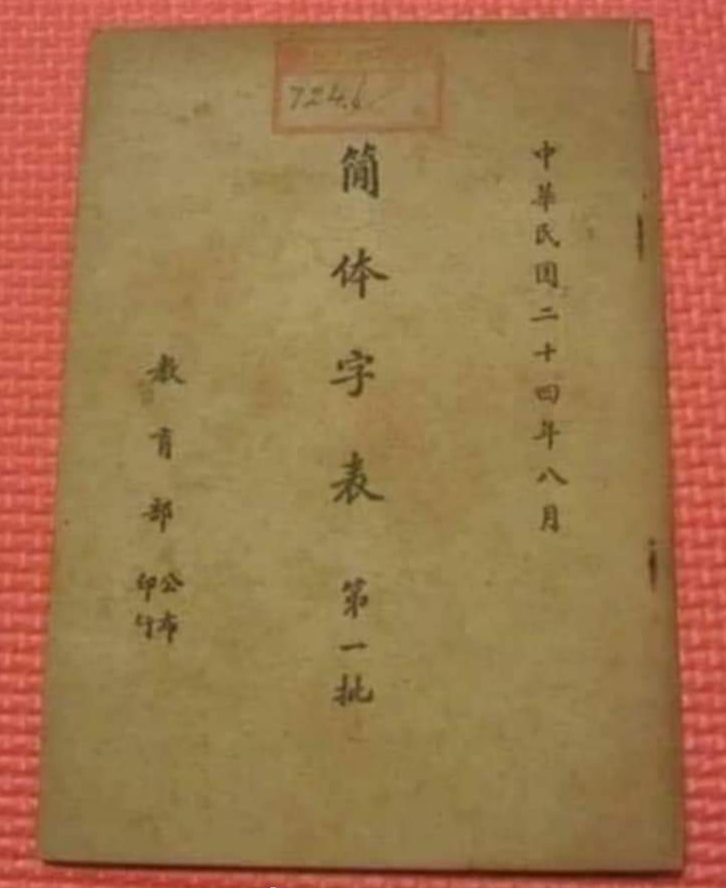 724.6
中華民国二十四年八月
簡体字表 第一批
教育部 公布
印行